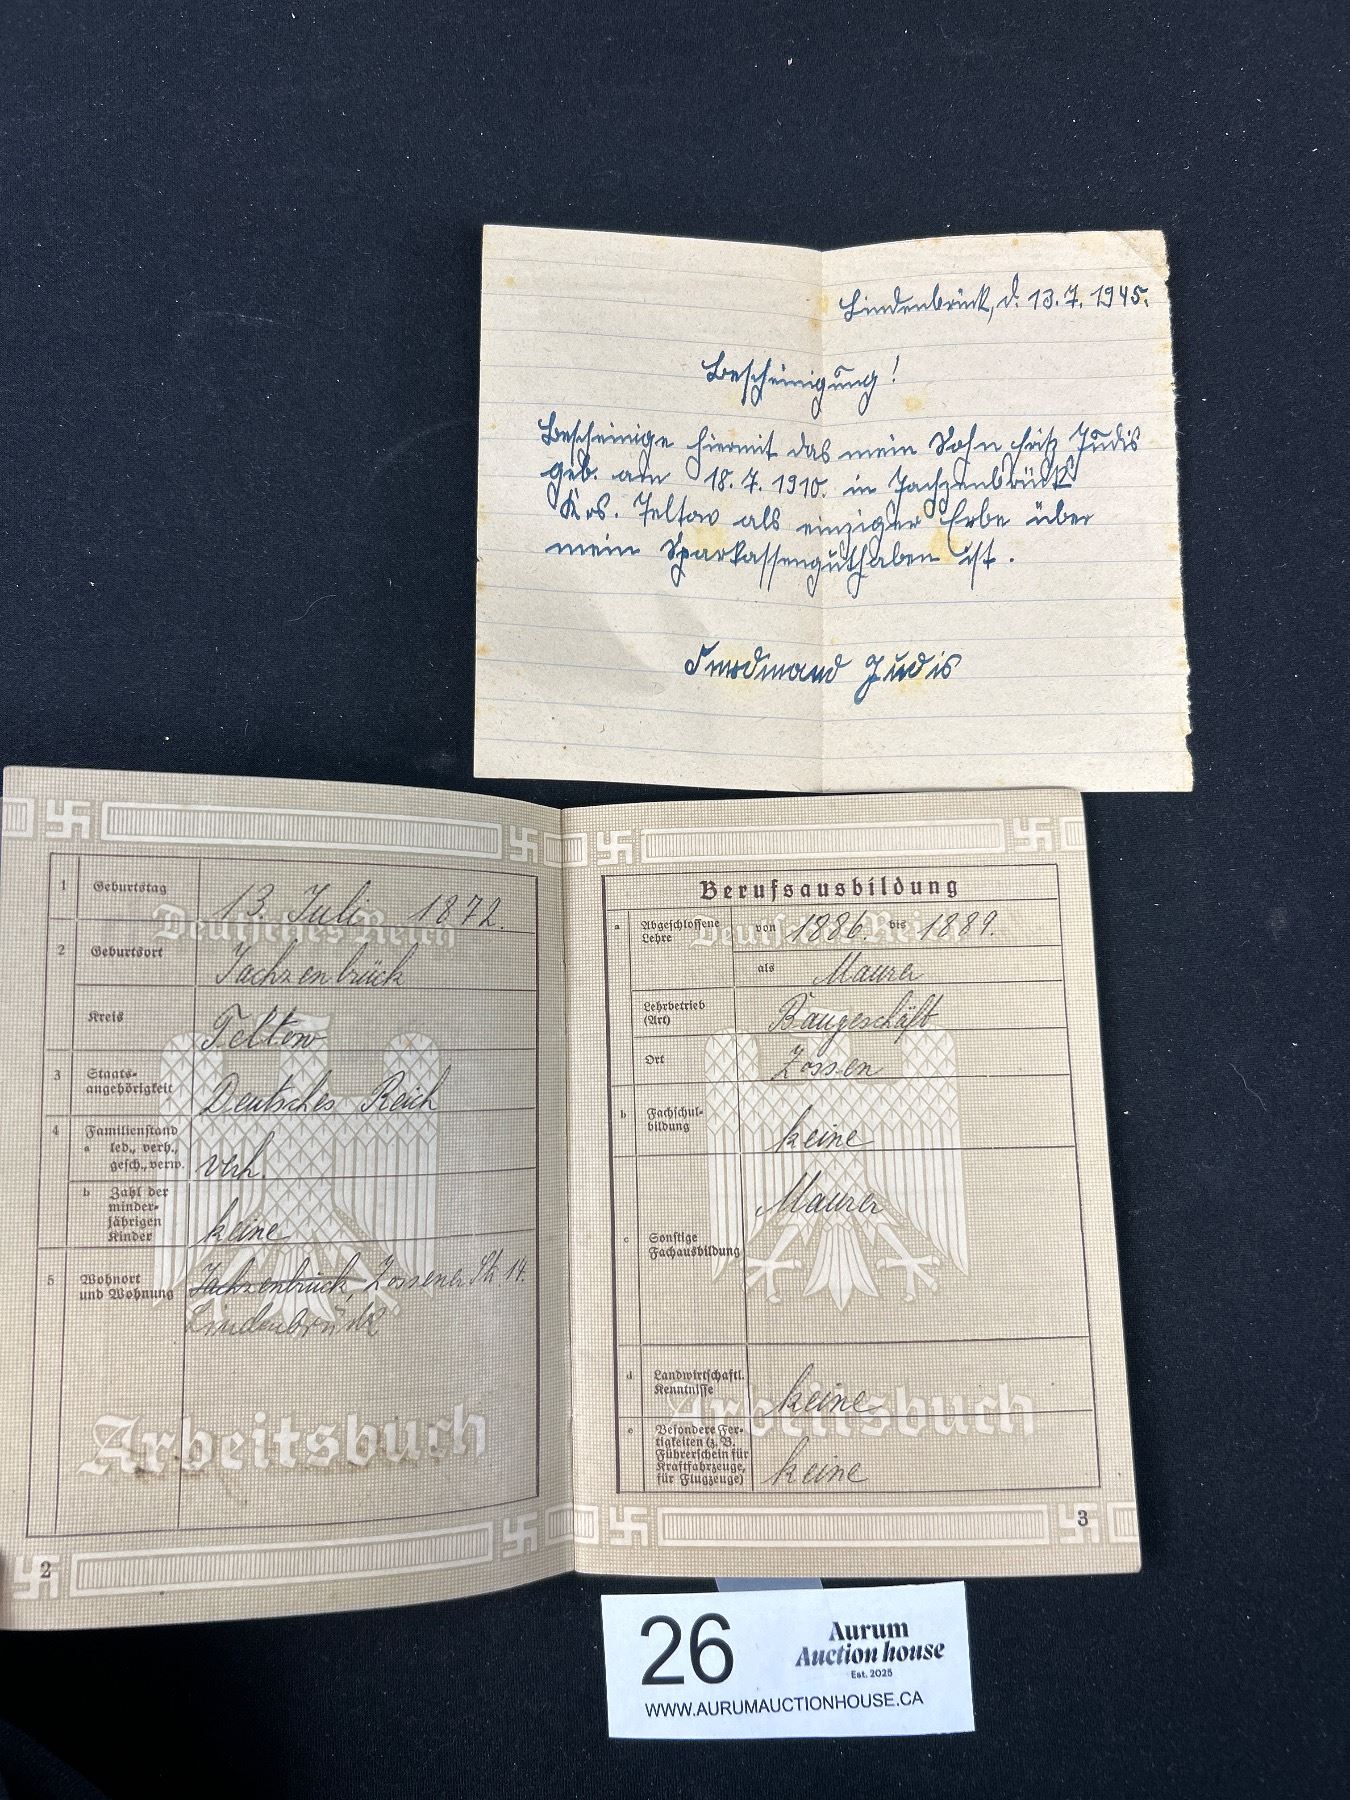 Lindenbrück, d. 13.7.1945.
Bescheinigung!
Bescheinige hiermit das mein Sohn Fritz Judis
geb. am 18.7.1910. in Jachzenbrück
Krs. Teltow als einziger Erbe über
mein Sparkassenguthaben ist.
Ferdinand Judis
1 Geburtstag 13. Juli 1872.
Deutsches Reich
2 Geburtsort Jachzenbrück
Kreis Teltow
3 Staats-
angehörigkeit Deutsches Reich
4 Familienstand
a led., verh.,
gesch., verw. verh.
b Zahl der
minder-
jährigen
Kinder keine
5 Wohnort
und Wohnung Jachzenbrück, Zossener Str. 14.
Lindenbrück
Arbeitsbuch
2
Berufsausbildung
a Abgeschlossene
Lehre von 1886. bis 1889.
Deutsches Reich
als Maurer
Lehrbetrieb
(Art) Baugeschäft
Ort Zossen
b Fachschul-
bildung keine
Maurer
c Sonstige
Fachausbildung
d Landwirtschaftl.
Kenntnisse keine
Arbeitsbuch
e Besondere Fer-
tigkeiten (z. B.
Führerschein für
Kraftfahrzeuge,
für Flugzeuge) keine
3
26
Aurum
Auction house
Est. 2025
WWW.AURUMAUCTIONHOUSE.CA